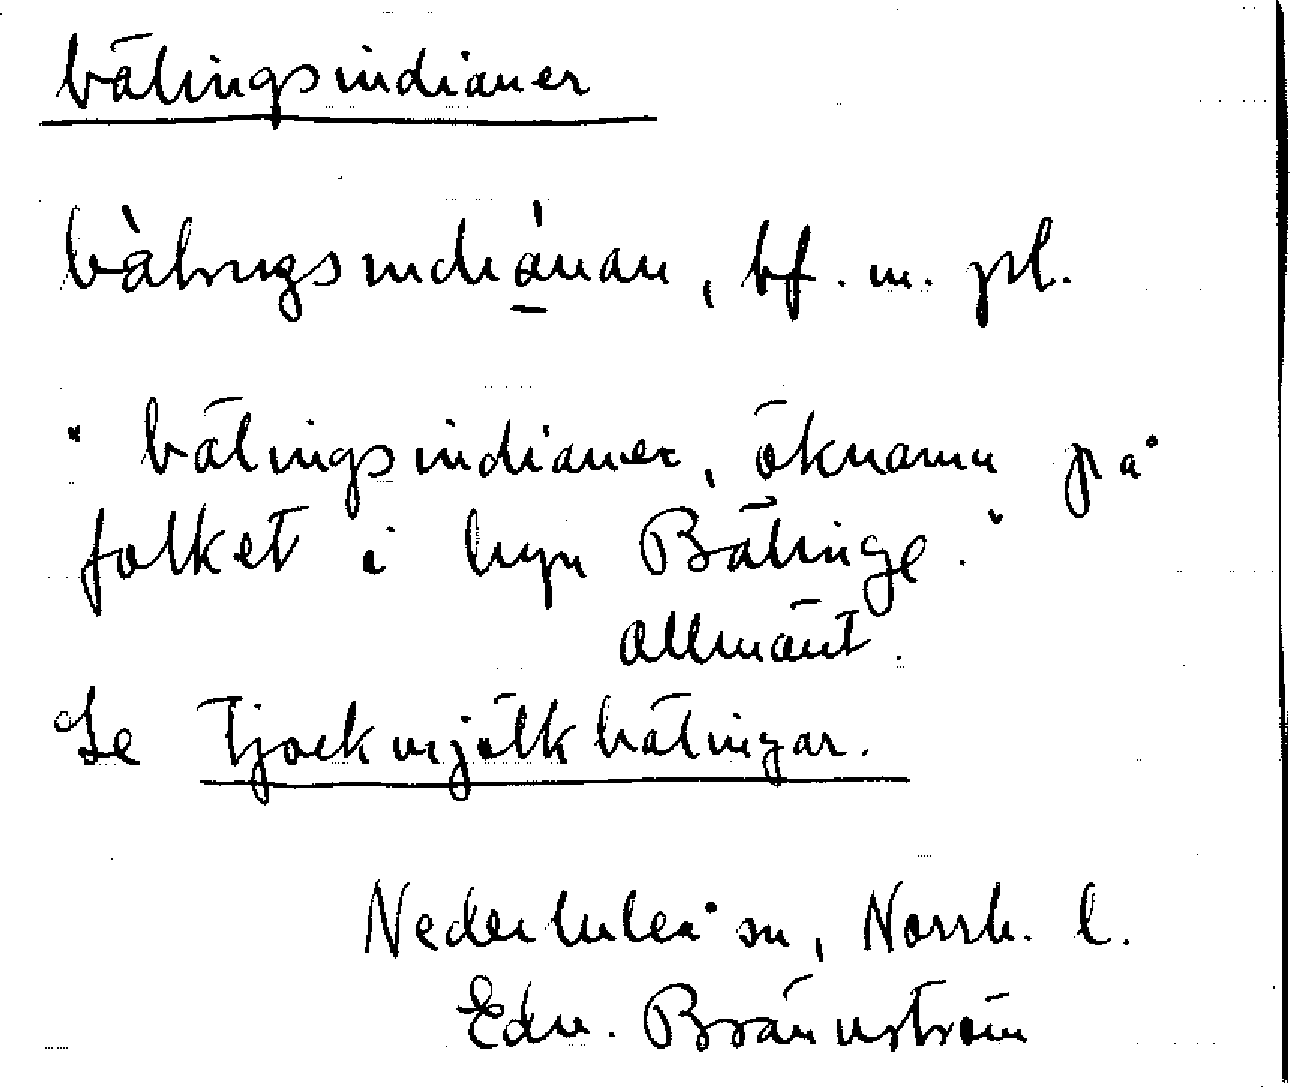 bälingsindianer
bàlingsindiánan, bf. m. pl.
"bälingsindianer, öknamn på
folket i byn Bälinge."
Allmänt.
Se Tjockmjölkbälingar.
Nederluleå sn, Norrb. l.
Edv. Brännström